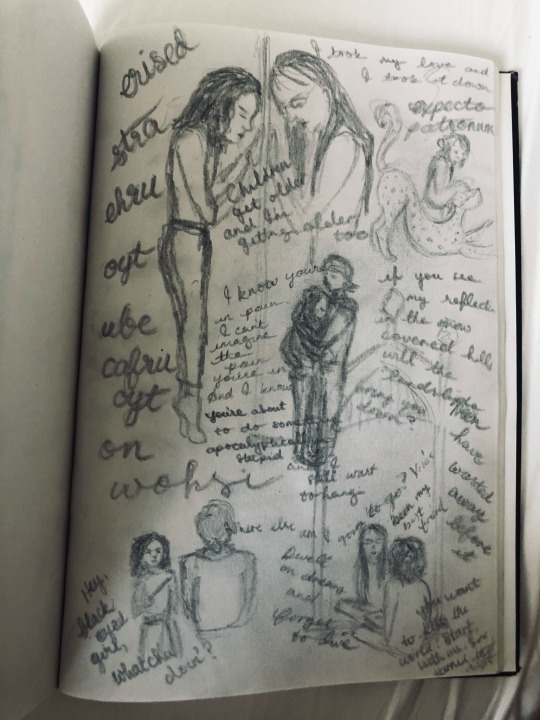 erised
stra
ehru
oyt
ube
cafru
oyt
on
wohsi
I took my love and
I took it down
expecto
patronum
Children
get older
and I'm
getting older
too
I know you're
in pain.
I can't
imagine
the
pain
you're in
And I know
you're about
to do something
apocalyptically
stupid
still want
to hang
if you see
my reflect
in the snow
covered hills
will the
landslide
down?
Men
have
wasted
away
before
it
Where else am I going to go?
been my
best
friend
Dwell
on dreams
and
forget
to live
Hey,
black
eyed
girl,
whatcha
doin'?
you want
to kill the
world. Start
with me.